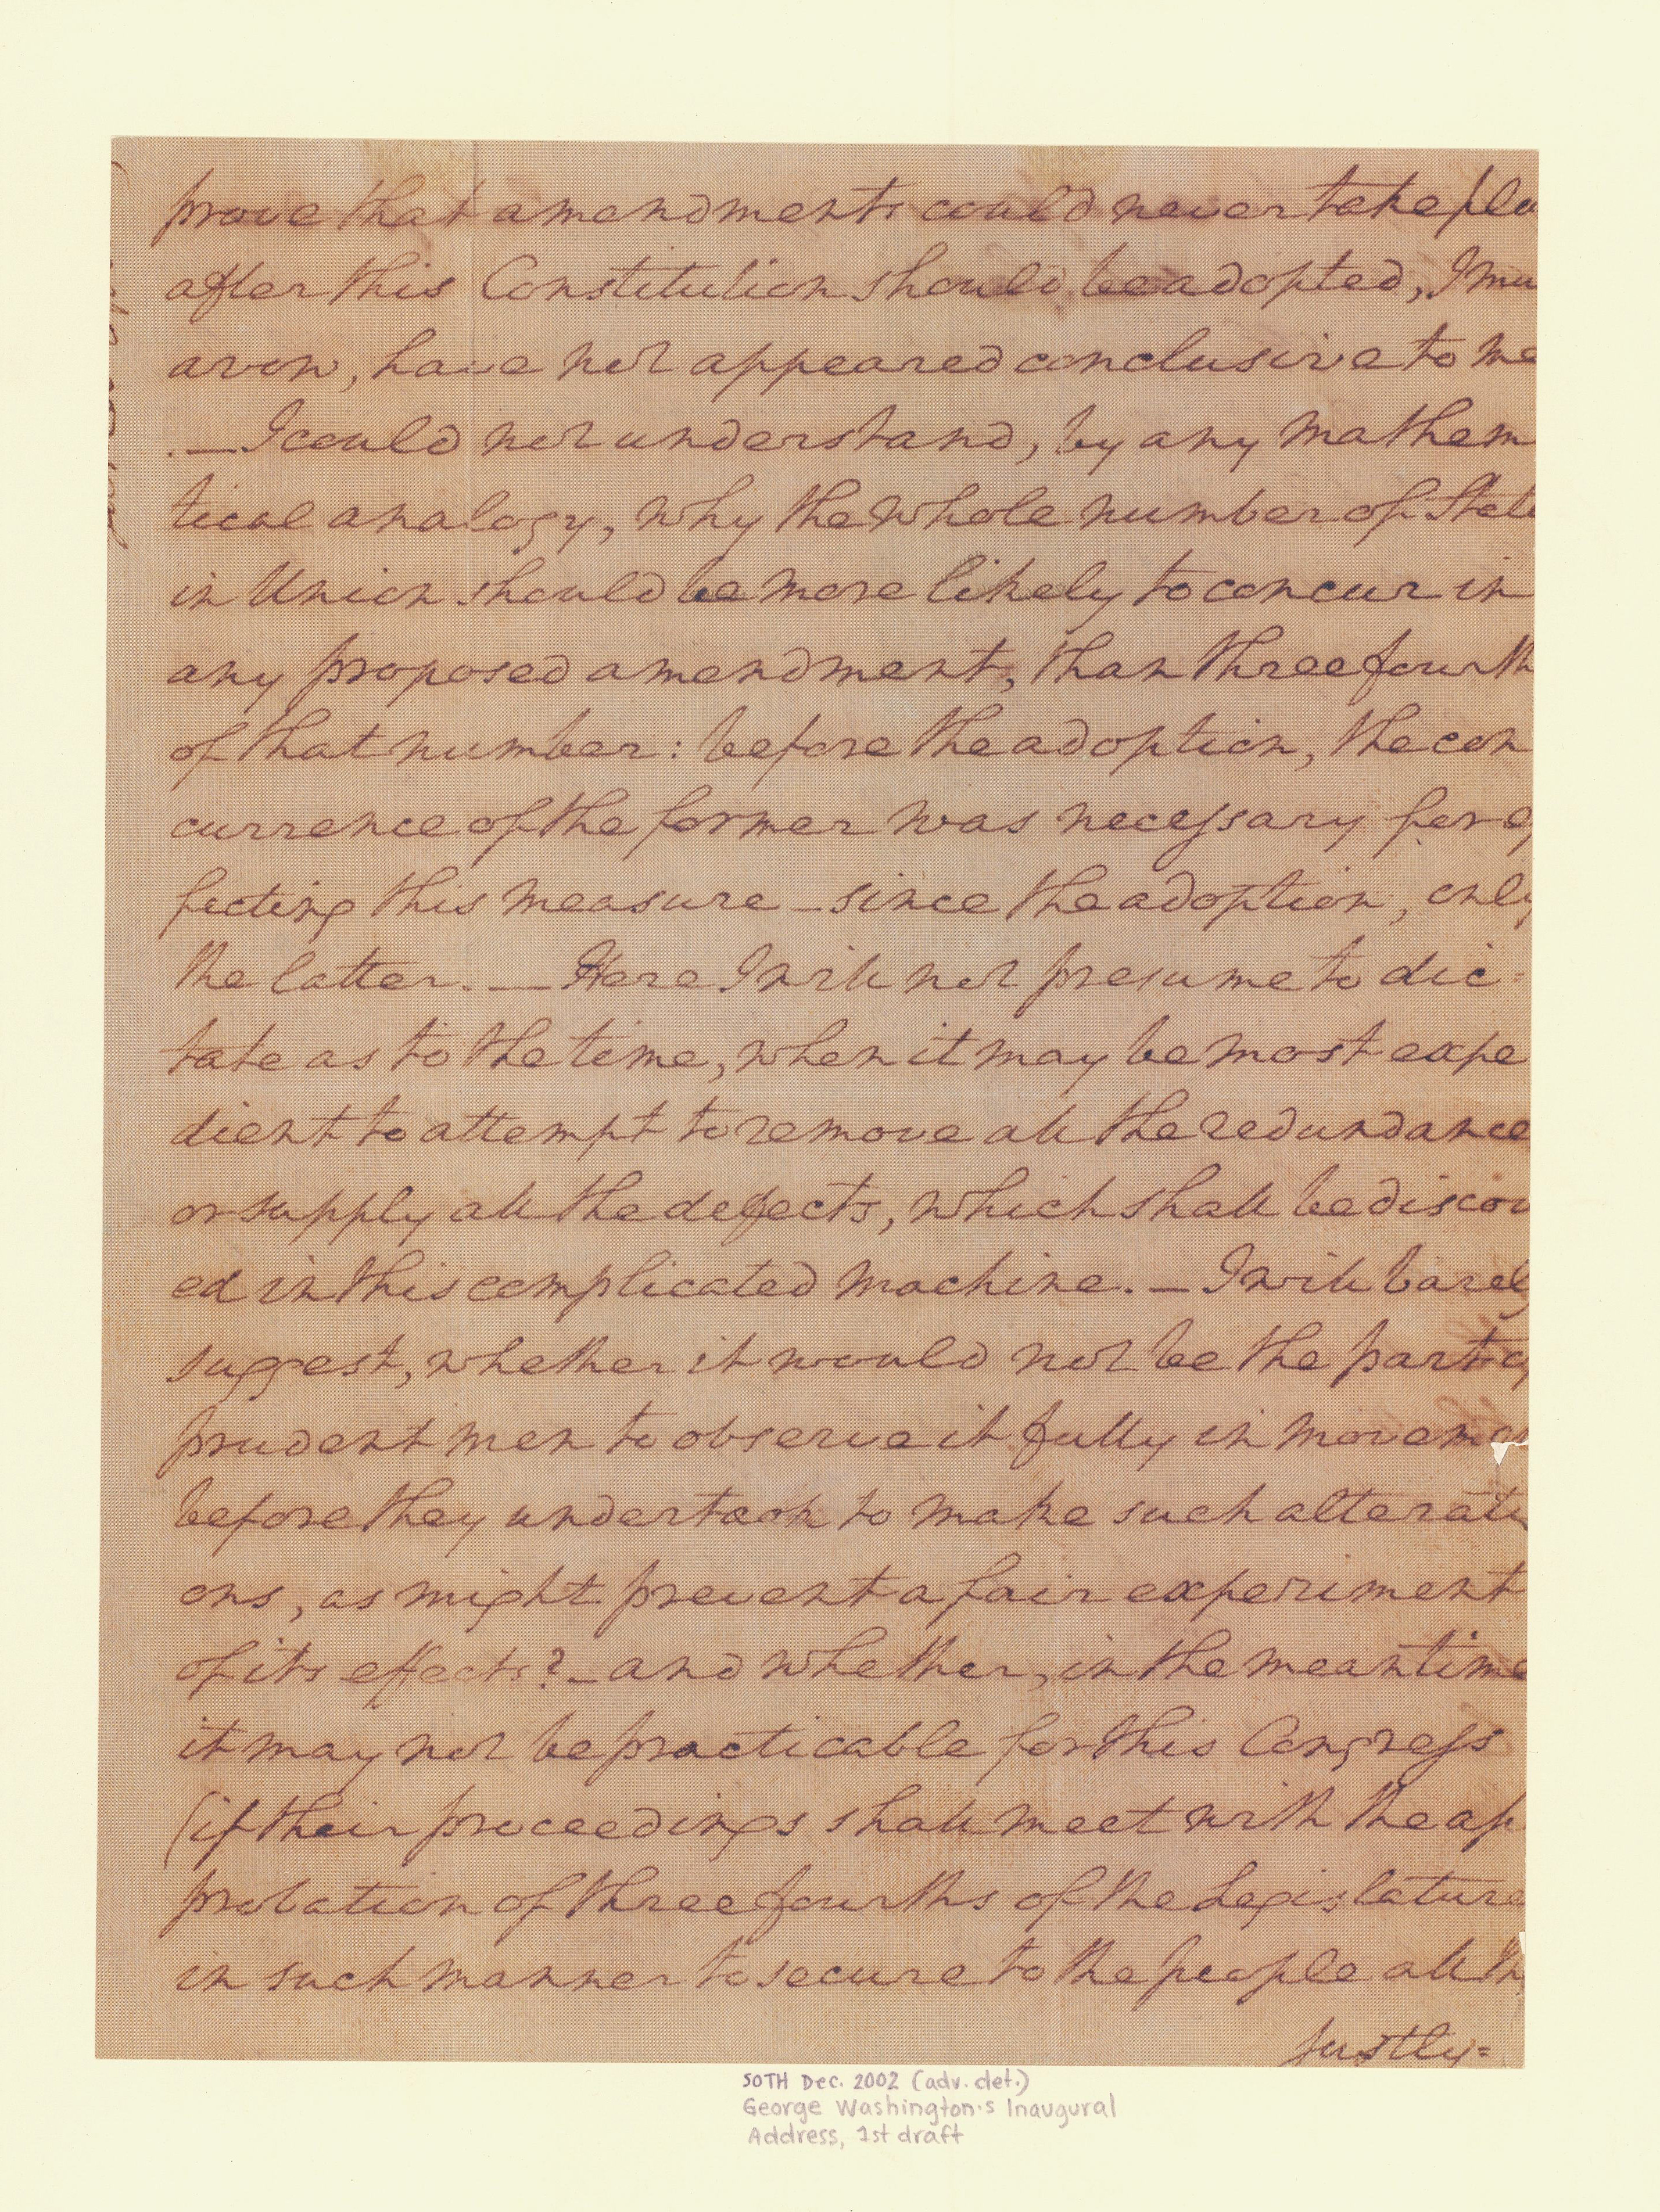 prove that amendments could never take pla
after this Constitution should be adopted, I mu
avow, have not appeared conclusive to me
. — I could not understand, by any mathem
tical analogy, why the whole number of State
in Union should be more likely to concur in
any proposed amendment, than three fourth
of that number: before the adoption, the con
currence of the former was necessary for ef
fecting this measure — since the adoption, only
the latter. — Here I will not presume to dic=
tate as to the time, when it may be most expe
dient to attempt to remove all the redundance
or supply all the defects, which shall be discov
ed in this complicated machine. — I will barely
suggest, whether it would not be the part of
prudent men to observe it fully in movemen
before they undertook to make such alterati
ons, as might prevent a fair experiment
of its effects? — and whether, in the meantime
it may not be practicable for this Congress
(if their proceedings shall meet with the ap
probation of three fourths of the Legislature
in such manner to secure to the people all th
justly=
SOTH Dec. 2002 (adv. det.)
George Washington's Inaugural
Address, 1st draft